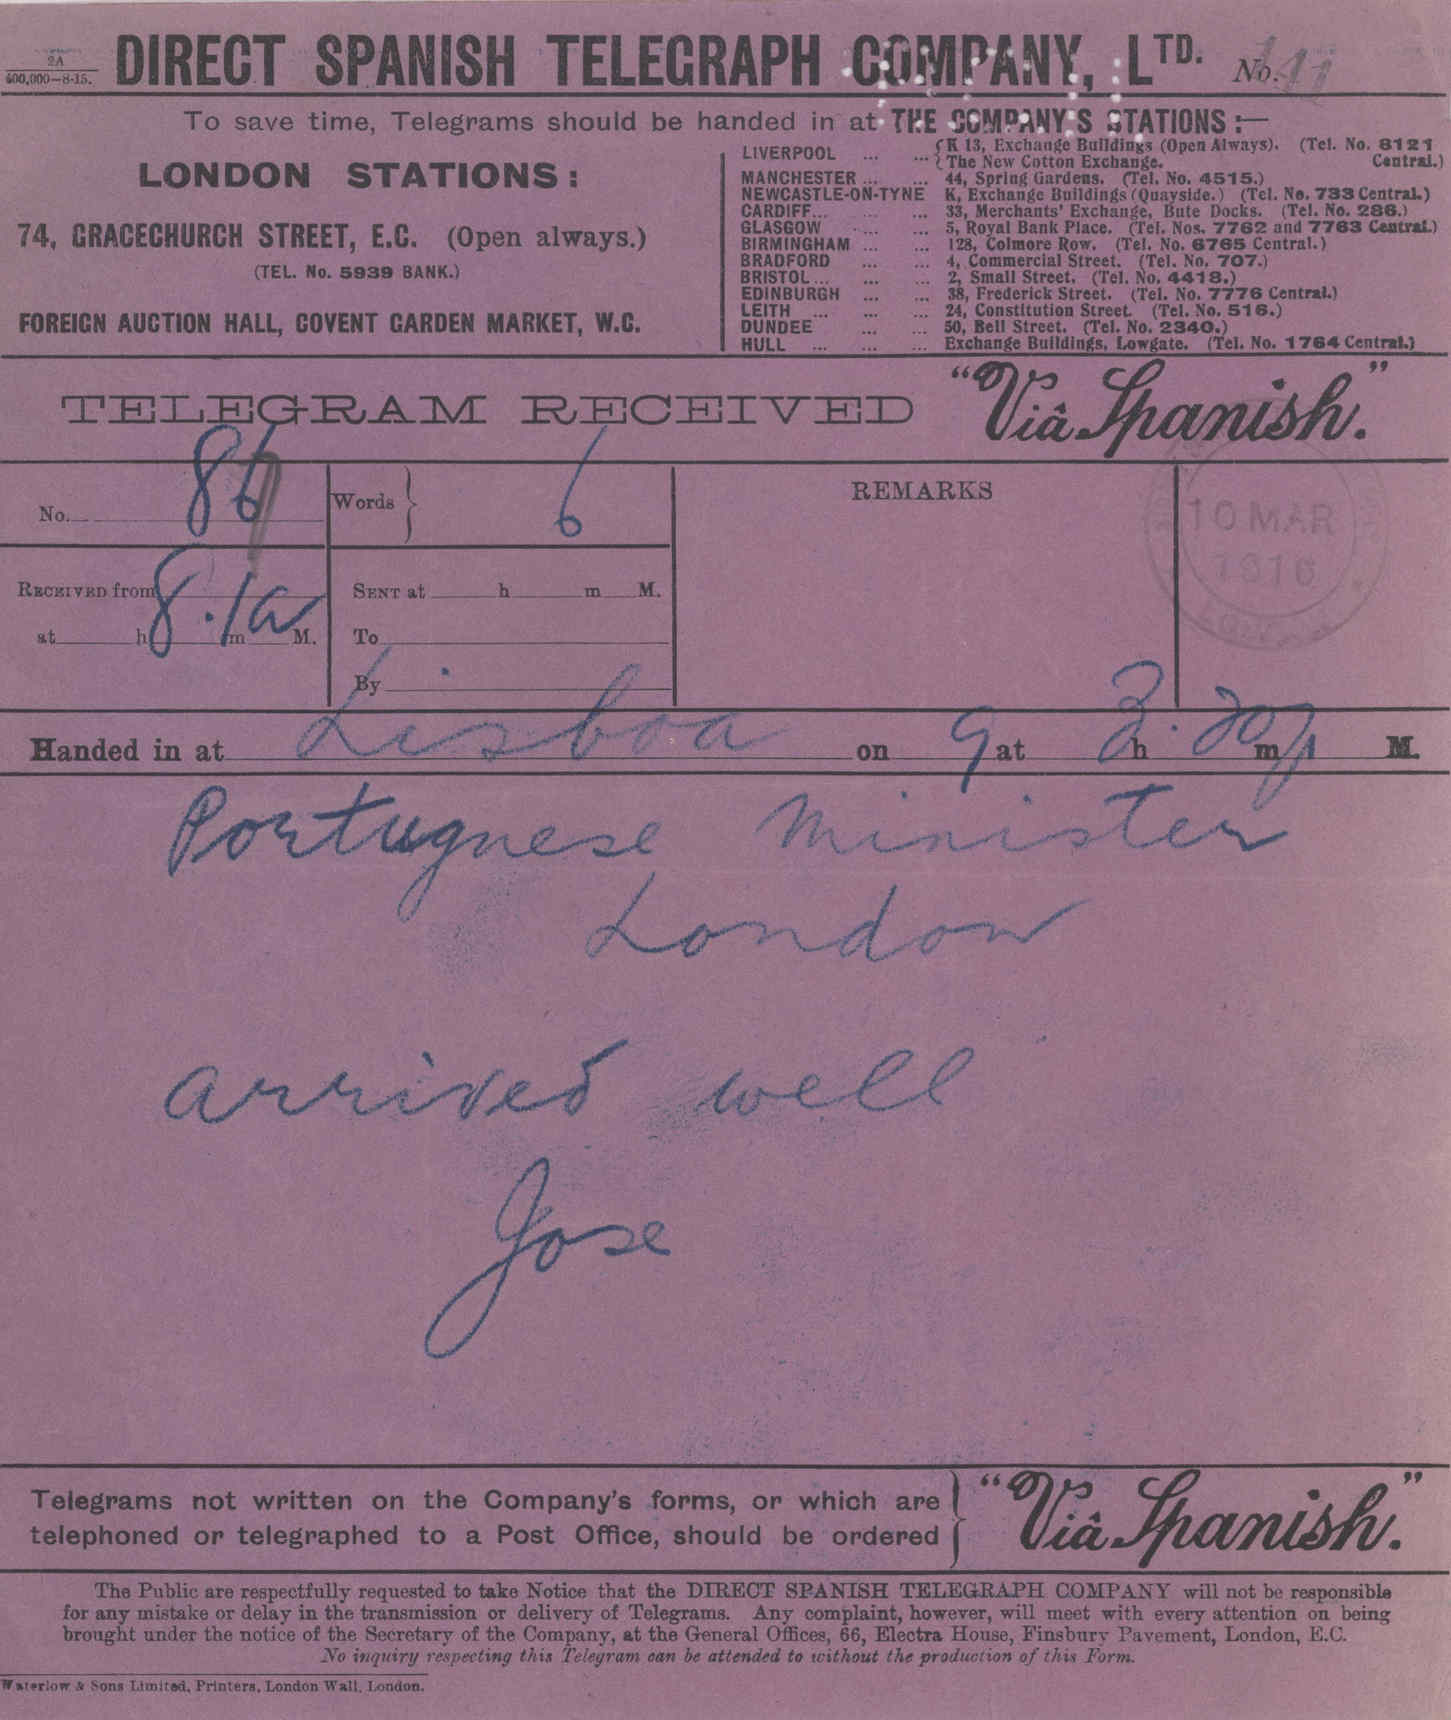 2A
400,000—8-15.
DIRECT SPANISH TELEGRAPH COMPANY, LTD.
No.
To save time, Telegrams should be handed in at THE COMPANY'S STATIONS :—
LONDON STATIONS :
74, GRACECHURCH STREET, E.C. (Open always.)
(TEL. No. 5939 BANK.)
FOREIGN AUCTION HALL, COVENT GARDEN MARKET, W.C.
LIVERPOOL ... ... K 13, Exchange Buildings (Open Always). (Tel. No. 8121
The New Cotton Exchange. Central.)
MANCHESTER ... ... 44, Spring Gardens. (Tel. No. 4515.)
NEWCASTLE-ON-TYNE K, Exchange Buildings (Quayside.) (Tel. No. 733 Central.)
CARDIFF... ... ... 33, Merchants' Exchange, Bute Docks. (Tel. No. 286.)
GLASGOW ... ... 5, Royal Bank Place. (Tel. Nos. 7762 and 7763 Central.)
BIRMINGHAM ... ... 128, Colmore Row. (Tel. No. 6765 Central.)
BRADFORD ... ... 4, Commercial Street. (Tel. No. 707.)
BRISTOL ... ... ... 2, Small Street. (Tel. No. 4418.)
EDINBURGH ... ... 38, Frederick Street. (Tel. No. 7776 Central.)
LEITH ... ... ... 24, Constitution Street. (Tel. No. 516.)
DUNDEE ... ... 50, Bell Street. (Tel. No. 2340.)
HULL ... ... ... Exchange Buildings, Lowgate. (Tel. No. 1764 Central.)
TELEGRAM RECEIVED
"Viâ Spanish."
No. 86
Words 6
REMARKS
10 MAR
1916
RECEIVED from
at h m M.
8.1a
SENT at h m M.
To
By
Handed in at Lisboa on 9 at 3 h 20 m p M.
Portuguese Minister
London
arrived well
Jose
Telegrams not written on the Company's forms, or which are
telephoned or telegraphed to a Post Office, should be ordered
"Viâ Spanish."
The Public are respectfully requested to take Notice that the DIRECT SPANISH TELEGRAPH COMPANY will not be responsible
for any mistake or delay in the transmission or delivery of Telegrams. Any complaint, however, will meet with every attention on being
brought under the notice of the Secretary of the Company, at the General Offices, 66, Electra House, Finsbury Pavement, London, E.C.
No inquiry respecting this Telegram can be attended to without the production of this Form.
Waterlow & Sons Limited, Printers, London Wall, London.